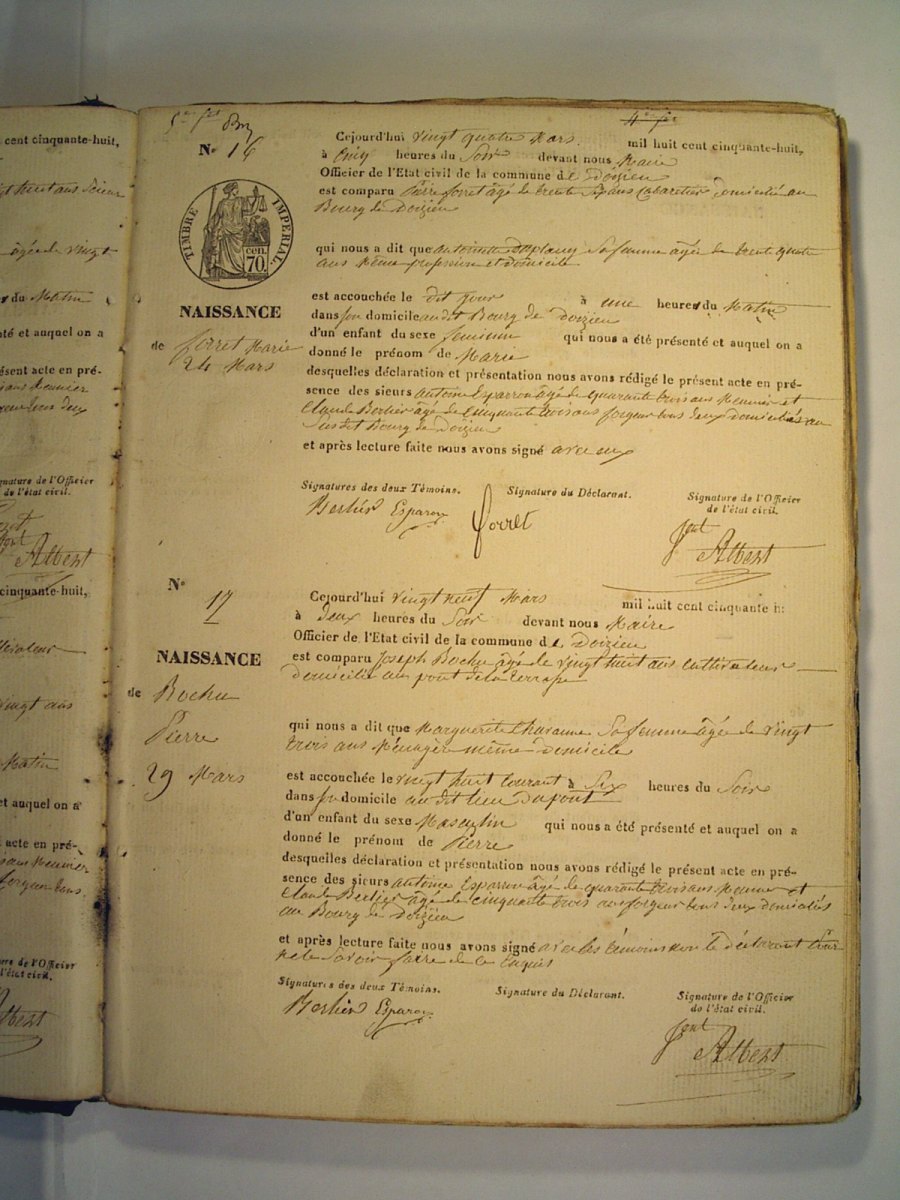 cent cinquante-huit,
huit ans
âgée de vingt
du Matin
té et auquel on a
ésent acte en pré-
sans Meunier
gnature de l'Officier
de l'état civil.
font
Albert
cinquante-huit,
vingt ans
Matin
et auquel on a
acte en pré-
ans Meunier
forgeur tous
ure de l'Officier
l'état civil.
Albert
4e fo
No 16
Cejourd'hui vingt quatre Mars mil huit cent cinquante-huit,
à Cinq heures du Soir devant nous Maire
Officier de l'Etat civil de la commune de Doizieu
est comparu Pierre forret âgé de trente Sept ans Cabaretier Domicilié au
Bourg de Doizieu
TIMBRE IMPERIAL
cen. 70.
qui nous a dit que antoinette Sa femme agée de trente quatre
ans Même profession et domicile
NAISSANCE
de forret Marie
24 Mars
est accouchée le dit jour à une heures du Matin
dans son domicile au dit Bourg de Doizieu
d'un enfant du sexe feminin qui nous a été présenté et auquel on a
donné le prénom de Marie
desquelles déclaration et présentation nous avons rédigé le présent acte en pré-
sence des sieurs antoine Esparron âgé de quarante trois ans Meunier et
Claude Berlier âgé de Cinquante trois ans forgeur tous deux domiciliés au
Sus dit Bourg de Doizieu
et après lecture faite nous avons signé avec eux
Signatures des deux Témoins. Signature du Déclarant. Signature de l'Officier
de l'état civil.
Berlier Esparon forret font
Albert
No 17
Cejourd'hui vingt neuf Mars mil huit cent cinquante h
à Deux heures du Soir devant nous Maire
Officier de l'Etat civil de la commune de Doizieu
NAISSANCE
de Bochu
Pierre
29 Mars
est comparu Joseph Bochu âgé de vingt huit ans cultivateur
domicilié au pont de la terrasse
qui nous a dit que Marguerite Chavanne Sa femme âgée de vingt
trois ans Ménagère même domicile
est accouchée le vingt huit courant à Six heures du Soir
dans son domicile au dit lieu Du pont
d'un enfant du sexe Masculin qui nous a été présenté et auquel on a
donné le prénom de Pierre
desquelles déclaration et présentation nous avons rédigé le présent acte en pré-
sence des sieurs antoine Esparron âgé de quarante trois ans Meunier et
Claude Berlier âgé de cinquante trois ans forgeur tous deux domiciliés
au Bourg de Doizieu
et après lecture faite nous avons signé avec les témoins non le déclarant pour
ne le Savoir faire de ce enquis
Signatures des deux Témoins. Signature du Déclarant. Signature de l'Officier
de l'état civil.
Berlier Esparon font
Albert